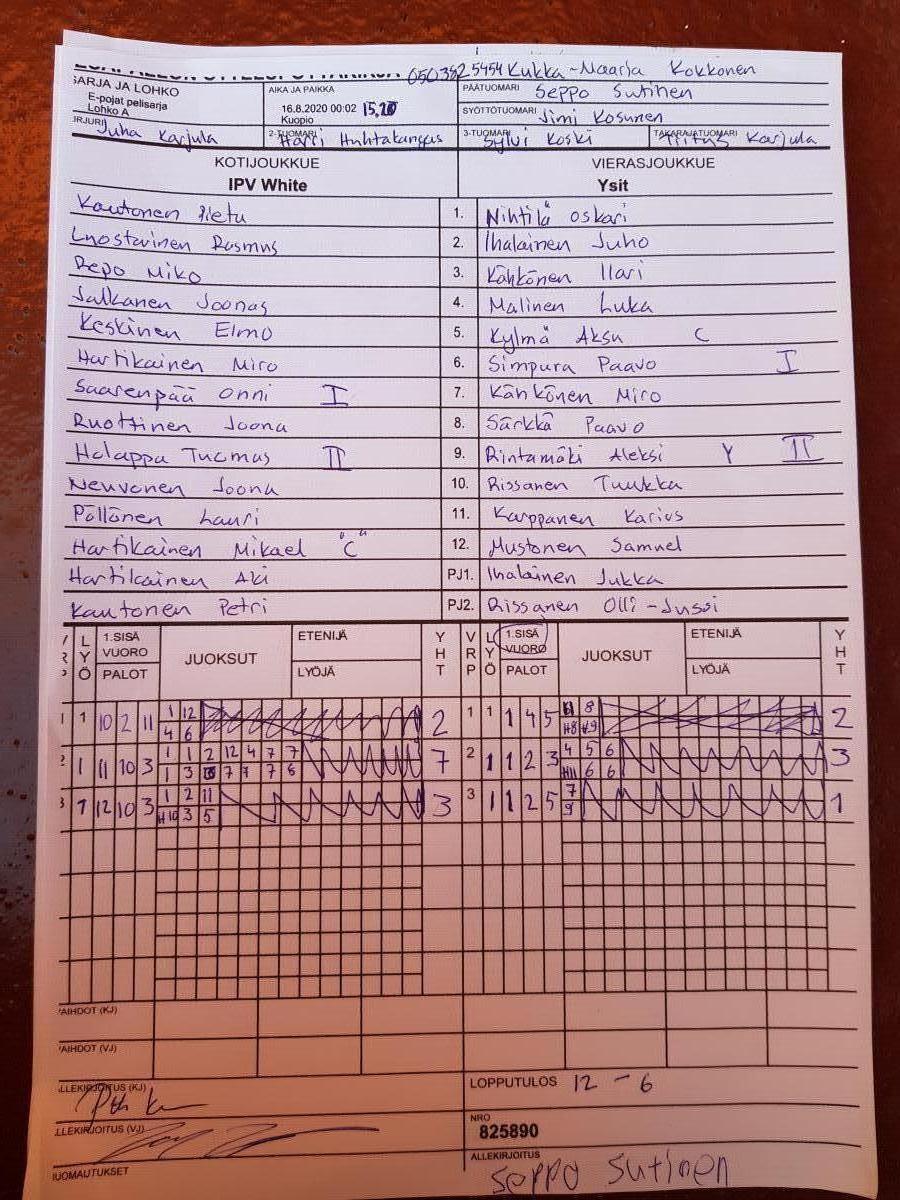 050382 5454 Kukka-Maaria Kokkonen
SARJA JA LOHKO
E-pojat pelisarja
Lohko A
AIKA JA PAIKKA
16.8.2020 00:02 15,20
Kuopio
PÄÄTUOMARI Seppo Sutinen
SYÖTTÖTUOMARI Jimi Kosunen
Juha Karjula
2-TUOMARI Harri Huhtakangas
3-TUOMARI Sylvi Koski
TAKARAJATUOMARI Karjula
KOTIJOUKKUE VIERASJOUKKUE
IPV White Ysit
Kautonen Pietu 1. Nihtilä Oskari
Rasmus 2. Ihalainen Juho
Repo Miko 3. Kähkönen Ilari
Jalkanen Joonas 4. Malinen Luka
Keskinen Elmo 5. Kylmä Aksu C
Hartikainen Miro 6. Simpura Paavo I
Saarenpää Onni I 7. Kähkönen Miro
Ruottinen Joona 8. Särkkä Paavo
Holappa Tuomas II 9. Rintamäki Aleksi Y II
Neuvonen Joona 10. Rissanen Tuukka
Pöllönen Lauri 11. Karppanen Karius
Hartikainen Mikael "C" 12. Mustonen Samuel
Hartikainen Aki PJ1. Ihalainen Jukka
Kautonen Petri PJ2. Rissanen Olli-Jussi
LYÖ 1.SISÄ VUORO PALOT JUOKSUT ETENIJÄ LYÖJÄ YHT VRP LYÖ 1.SISÄ VUORO PALOT JUOKSUT ETENIJÄ LYÖJÄ YHT
1 1 10 2 11 1 12 2 1 1 1 4 5 8 2
4 6 H8
2 1 11 10 3 1 1 2 12 4 7 7 7 2 1 1 2 3 4 5 6 3
1 3 7 7 7 H11 6 6
3 1 12 10 3 1 2 11 3 3 1 1 2 5 7 1
H10 3 5 9
VAIHDOT (KJ)
VAIHDOT (VJ)
ALLEKIRJOITUS (KJ)
LOPPUTULOS 12 - 6
ALLEKIRJOITUS (VJ)
NRO
825890
HUOMAUTUKSET
ALLEKIRJOITUS
Seppo Sutinen